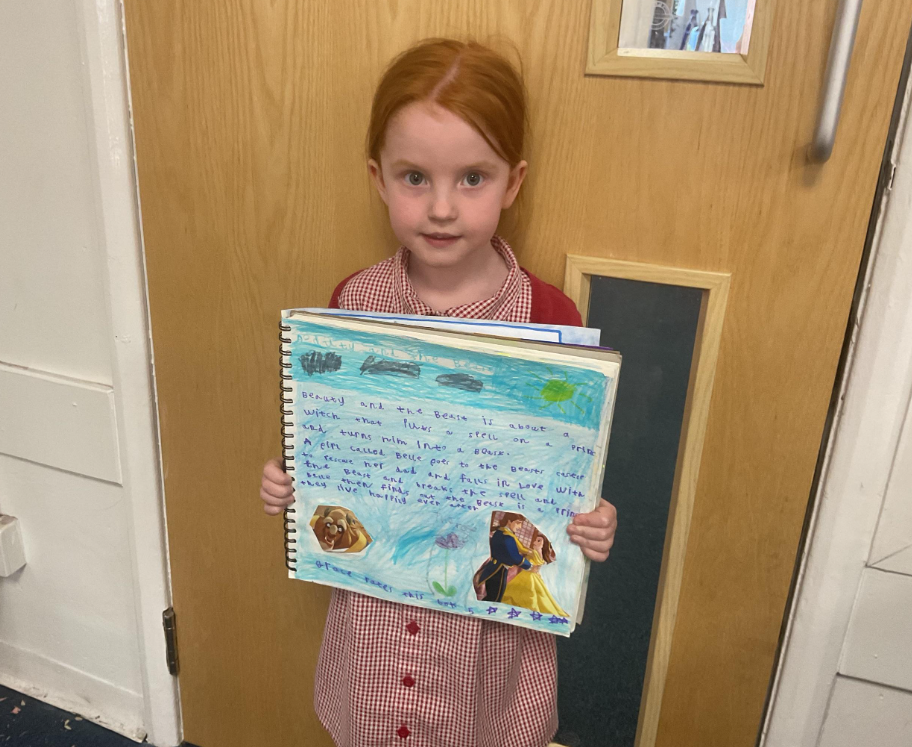 and the Beast
Beauty and the Beast is about a
witch that puts a spell on a
and turns him into a Beast.
A girl called Belle goes to the Beasts
to rescue her dad and falls in love with
the Beast and breaks the spell and
then finds out the Beast is a
they live happily ever after
Grace rates this book 5